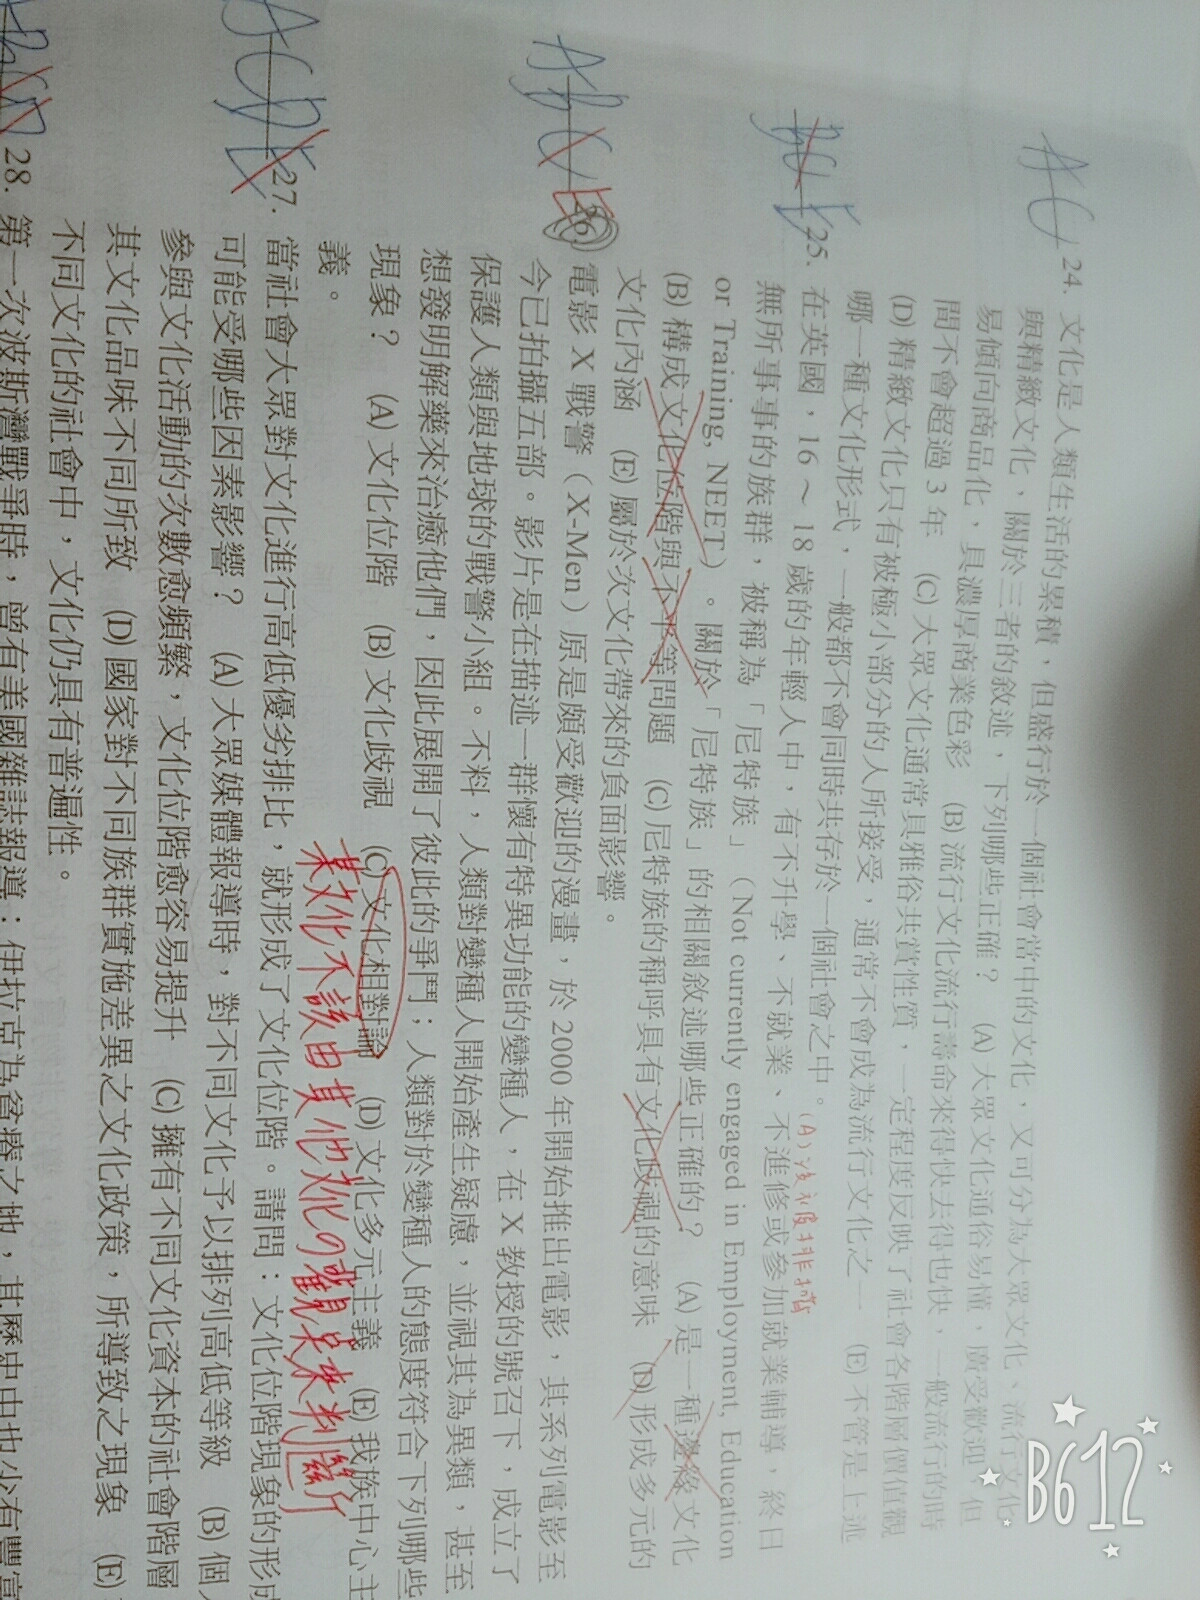 AC 24. 文化是人類生活的累積，但盛行於一個社會當中的文化，又可分為大眾文化、流行文化
與精緻文化，關於三者的敘述，下列哪些正確？ (A)大眾文化通俗易懂，廣受歡迎，但
易傾向商品化，具濃厚商業色彩 (B)流行文化流行壽命來得快去得也快，一般流行的時
間不會超過 3 年 (C)大眾文化通常具雅俗共賞性質，一定程度反映了社會各階層價值觀
(D)精緻文化只有被極小部分的人所接受，通常不會成為流行文化之一 (E)不管是上述
哪一種文化形式，一般都不會同時共存於一個社會之中。
(A)沒被排擠
25. 在英國，16～18 歲的年輕人中，有不升學、不就業、不進修或參加就業輔導，終日
無所事事的族群，被稱為「尼特族」（Not currently engaged in Employment, Education
or Training, NEET）。關於「尼特族」的相關敘述哪些正確的？ (A)是一種邊緣文化
(B)構成文化位階與不平等問題 (C)尼特族的稱呼具有文化歧視的意味 (D)形成多元的
文化內涵 (E)屬於次文化帶來的負面影響。
26 電影 X 戰警（X-Men）原是頗受歡迎的漫畫，於 2000 年開始推出電影，其系列電影至
今已拍攝五部。影片是在描述一群懷有特異功能的變種人，在 X 教授的號召下，成立了
保護人類與地球的戰警小組。不料，人類對變種人開始產生疑慮，並視其為異類，甚至
想發明解藥來治癒他們，因此展開了彼此的爭鬥；人類對於變種人的態度符合下列哪些
現象？ (A)文化位階 (B)文化歧視 (C)文化相對論 (D)文化多元主義 (E)我族中心主
義。
某文化不該由其他文化の觀點來判斷
27. 當社會大眾對文化進行高低優劣排比，就形成了文化位階。請問：文化位階現象的形成
可能受哪些因素影響？ (A)大眾媒體報導時，對不同文化予以排列高低等級 (B)個人
參與文化活動的次數愈頻繁，文化位階愈容易提升 (C)擁有不同文化資本的社會階層
其文化品味不同所致 (D)國家對不同族群實施差異之文化政策，所導致之現象 (E)
不同文化的社會中，文化仍具有普遍性。
28. 第一次波斯灣戰爭時，曾有美國雜誌報導：伊拉克為貧瘠之地，其歷史中也少有豐富
B612